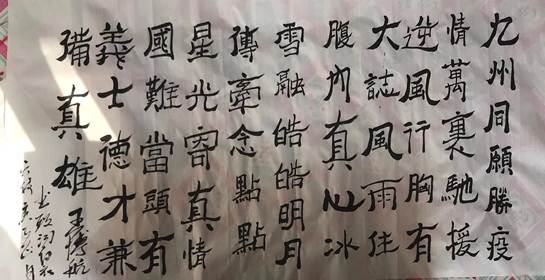 九州同願勝疫
情萬裏馳援
逆風行胸有
大誌風雨住
腹內真心冰
雪融皓皓明月
傳牽念點點
星光寄真情
國難當頭有
義士德才兼
備真雄